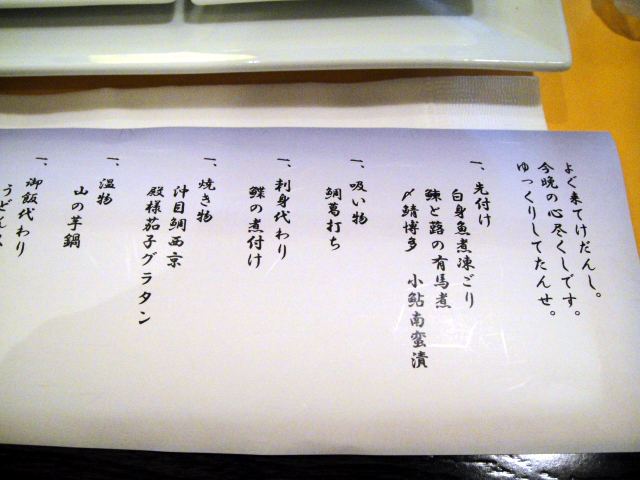 よぐ来てけだんし。
今晩の心尽くしです。
ゆっくりしてたんせ。
一、先付け
白身魚煮凍ごり
鰊と蕗の有馬煮
〆鯖博多　小鮎南蛮漬
一、吸い物
鯛葛打ち
一、刺身代わり
鰈の煮付け
一、焼き物
沖目鯛西京
殿様茄子グラタン
一、温物
山の芋鍋
一、御飯代わり
うどん